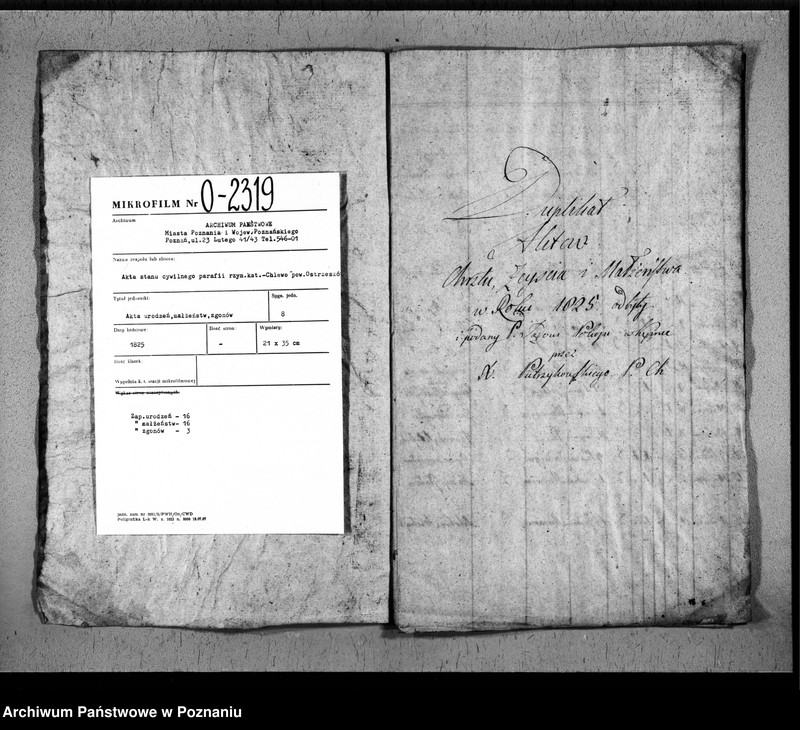 MIKROFILM Nr O-2319
Archiwum
ARCHIWUM PAŃSTWOWE
Miasta Poznania i Wojew. Poznańskiego
Poznań, ul. 23 Lutego 41/43 Tel. 546-01
Nazwa zespołu lub zbioru:
Akta stanu cywilnego parafii rzym.kat.-Chlewo "pow.Ostrzeszó
Tytuł jednostki:
Sygn. jedn.
Akta urodzeń, małżeństw, zgonów
8
Daty końcowe:
Ilość stron:
Wymiary:
1825
-
21 x 35 cm
Ilość klatek
Wypełnia k. t. stacji mikrofilmowej
Zap. urodzeń - 16
" małżeństw- 16
" zgonów - 3
Duplikat
Aktow
Chrztu, Zeyscia i Małżeństwa
w Roku 1825 odbyty
i podany P. Sądowi Pokoju w Kępnie
przez
X. P. Ch
Archiwum Państwowe w Poznaniu